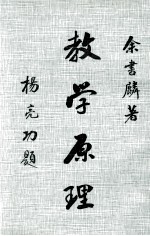 余書麟著
教学原理
楊亮功題